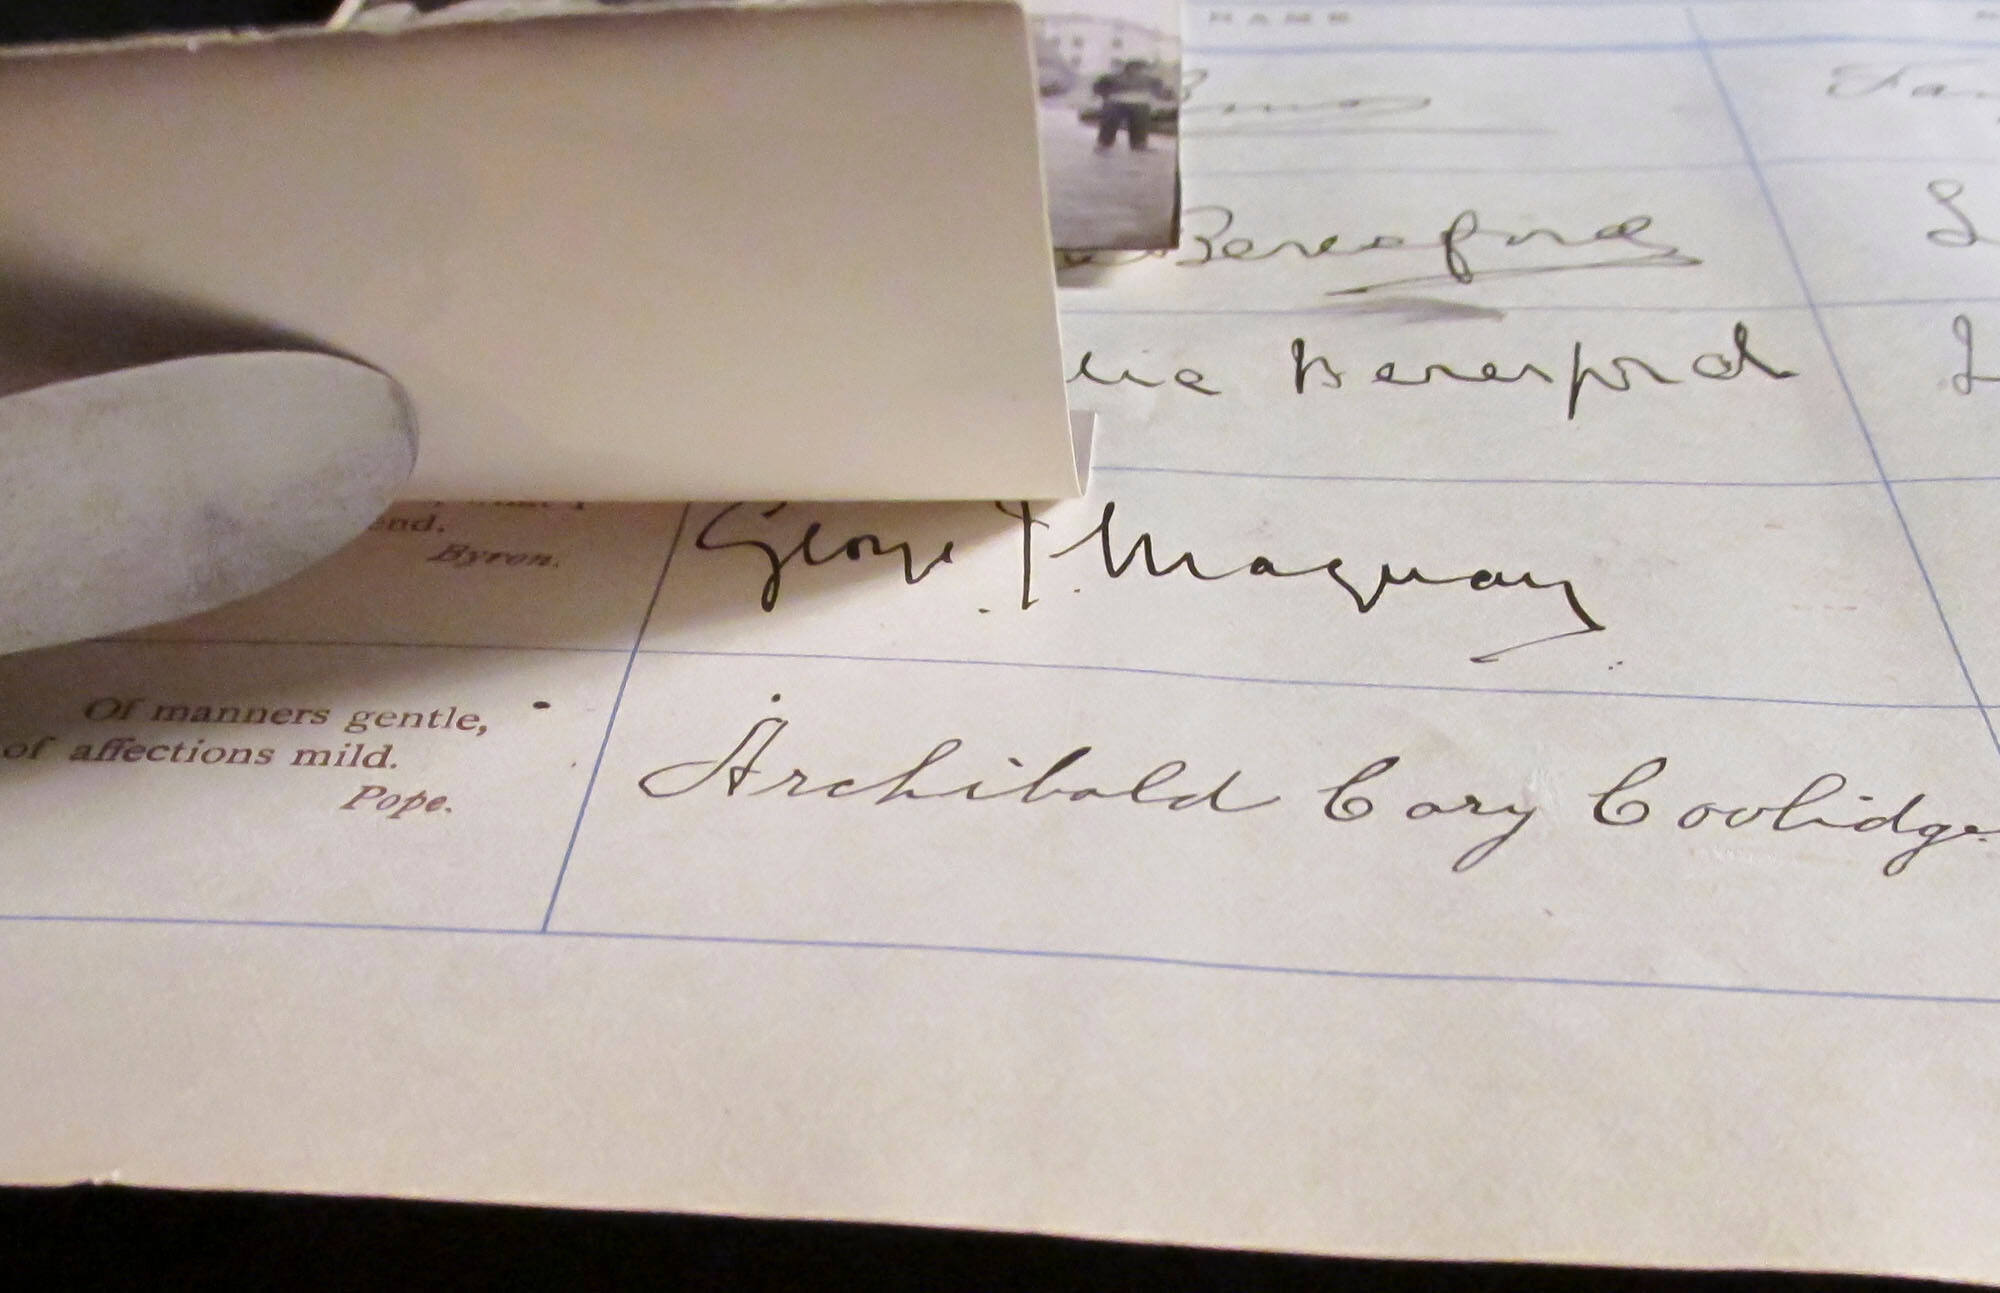 NAME
Beresford
Beresford
end.
Byron.
George F Maquay
Of manners gentle,
of affections mild.
Pope.
Archibald Cary Coolidge